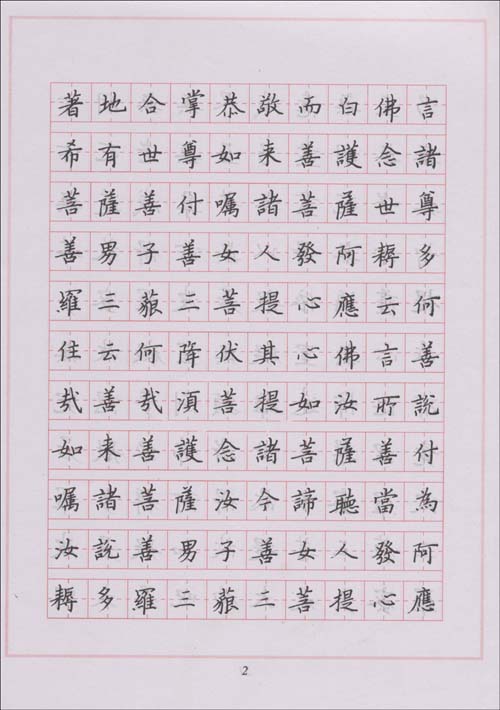 著地合掌恭敬而白佛言
希有世尊如来善護念諸
菩薩善付嘱諸菩薩世尊
善男子善女人發阿耨多
羅三藐三菩提心應云何
住云何降伏其心佛言善
哉善哉湏菩提如汝所說
如来善護念諸菩薩善付
嘱諸菩薩汝今諦聽當為
汝說善男子善女人發阿
耨多羅三藐三菩提心應
2